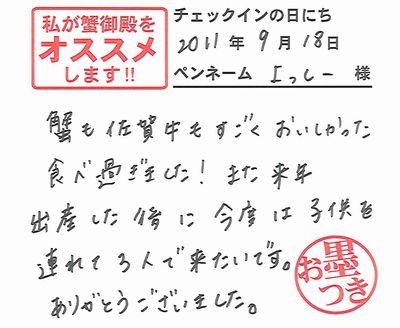 私が蟹御殿を
オススメ
します!!
チェックインの日にち
2011年9月18日
ペンネーム よっしー 様
蟹も佐賀牛もすごくおいしかった
食べ過ぎました！また来年
出産した後に今度は子供を
連れて3人で来たいです。
ありがとうございました。
お墨つき